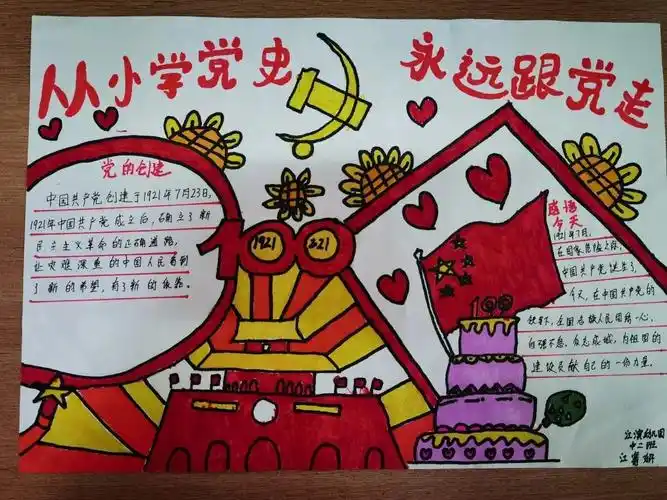 从小学党史
永远跟党走
党的创建
中国共产党创建于1921年7月23日,
1921年中国共产党成立后,确立了新
民主主义革命的正确道路,
让灾难深重的中国人民看到
了新的希望,有了新的依靠。
100
1921
2021
100
感悟
今天
1921年7月,
在国家危险之际,
中国共产党诞生了,
今天,在中国共产党的
领导下,全国各族人民团结一心,
自强不息,众志成城,为祖国的
建设贡献自己的一份力量。
江滨幼儿园
中二班
江